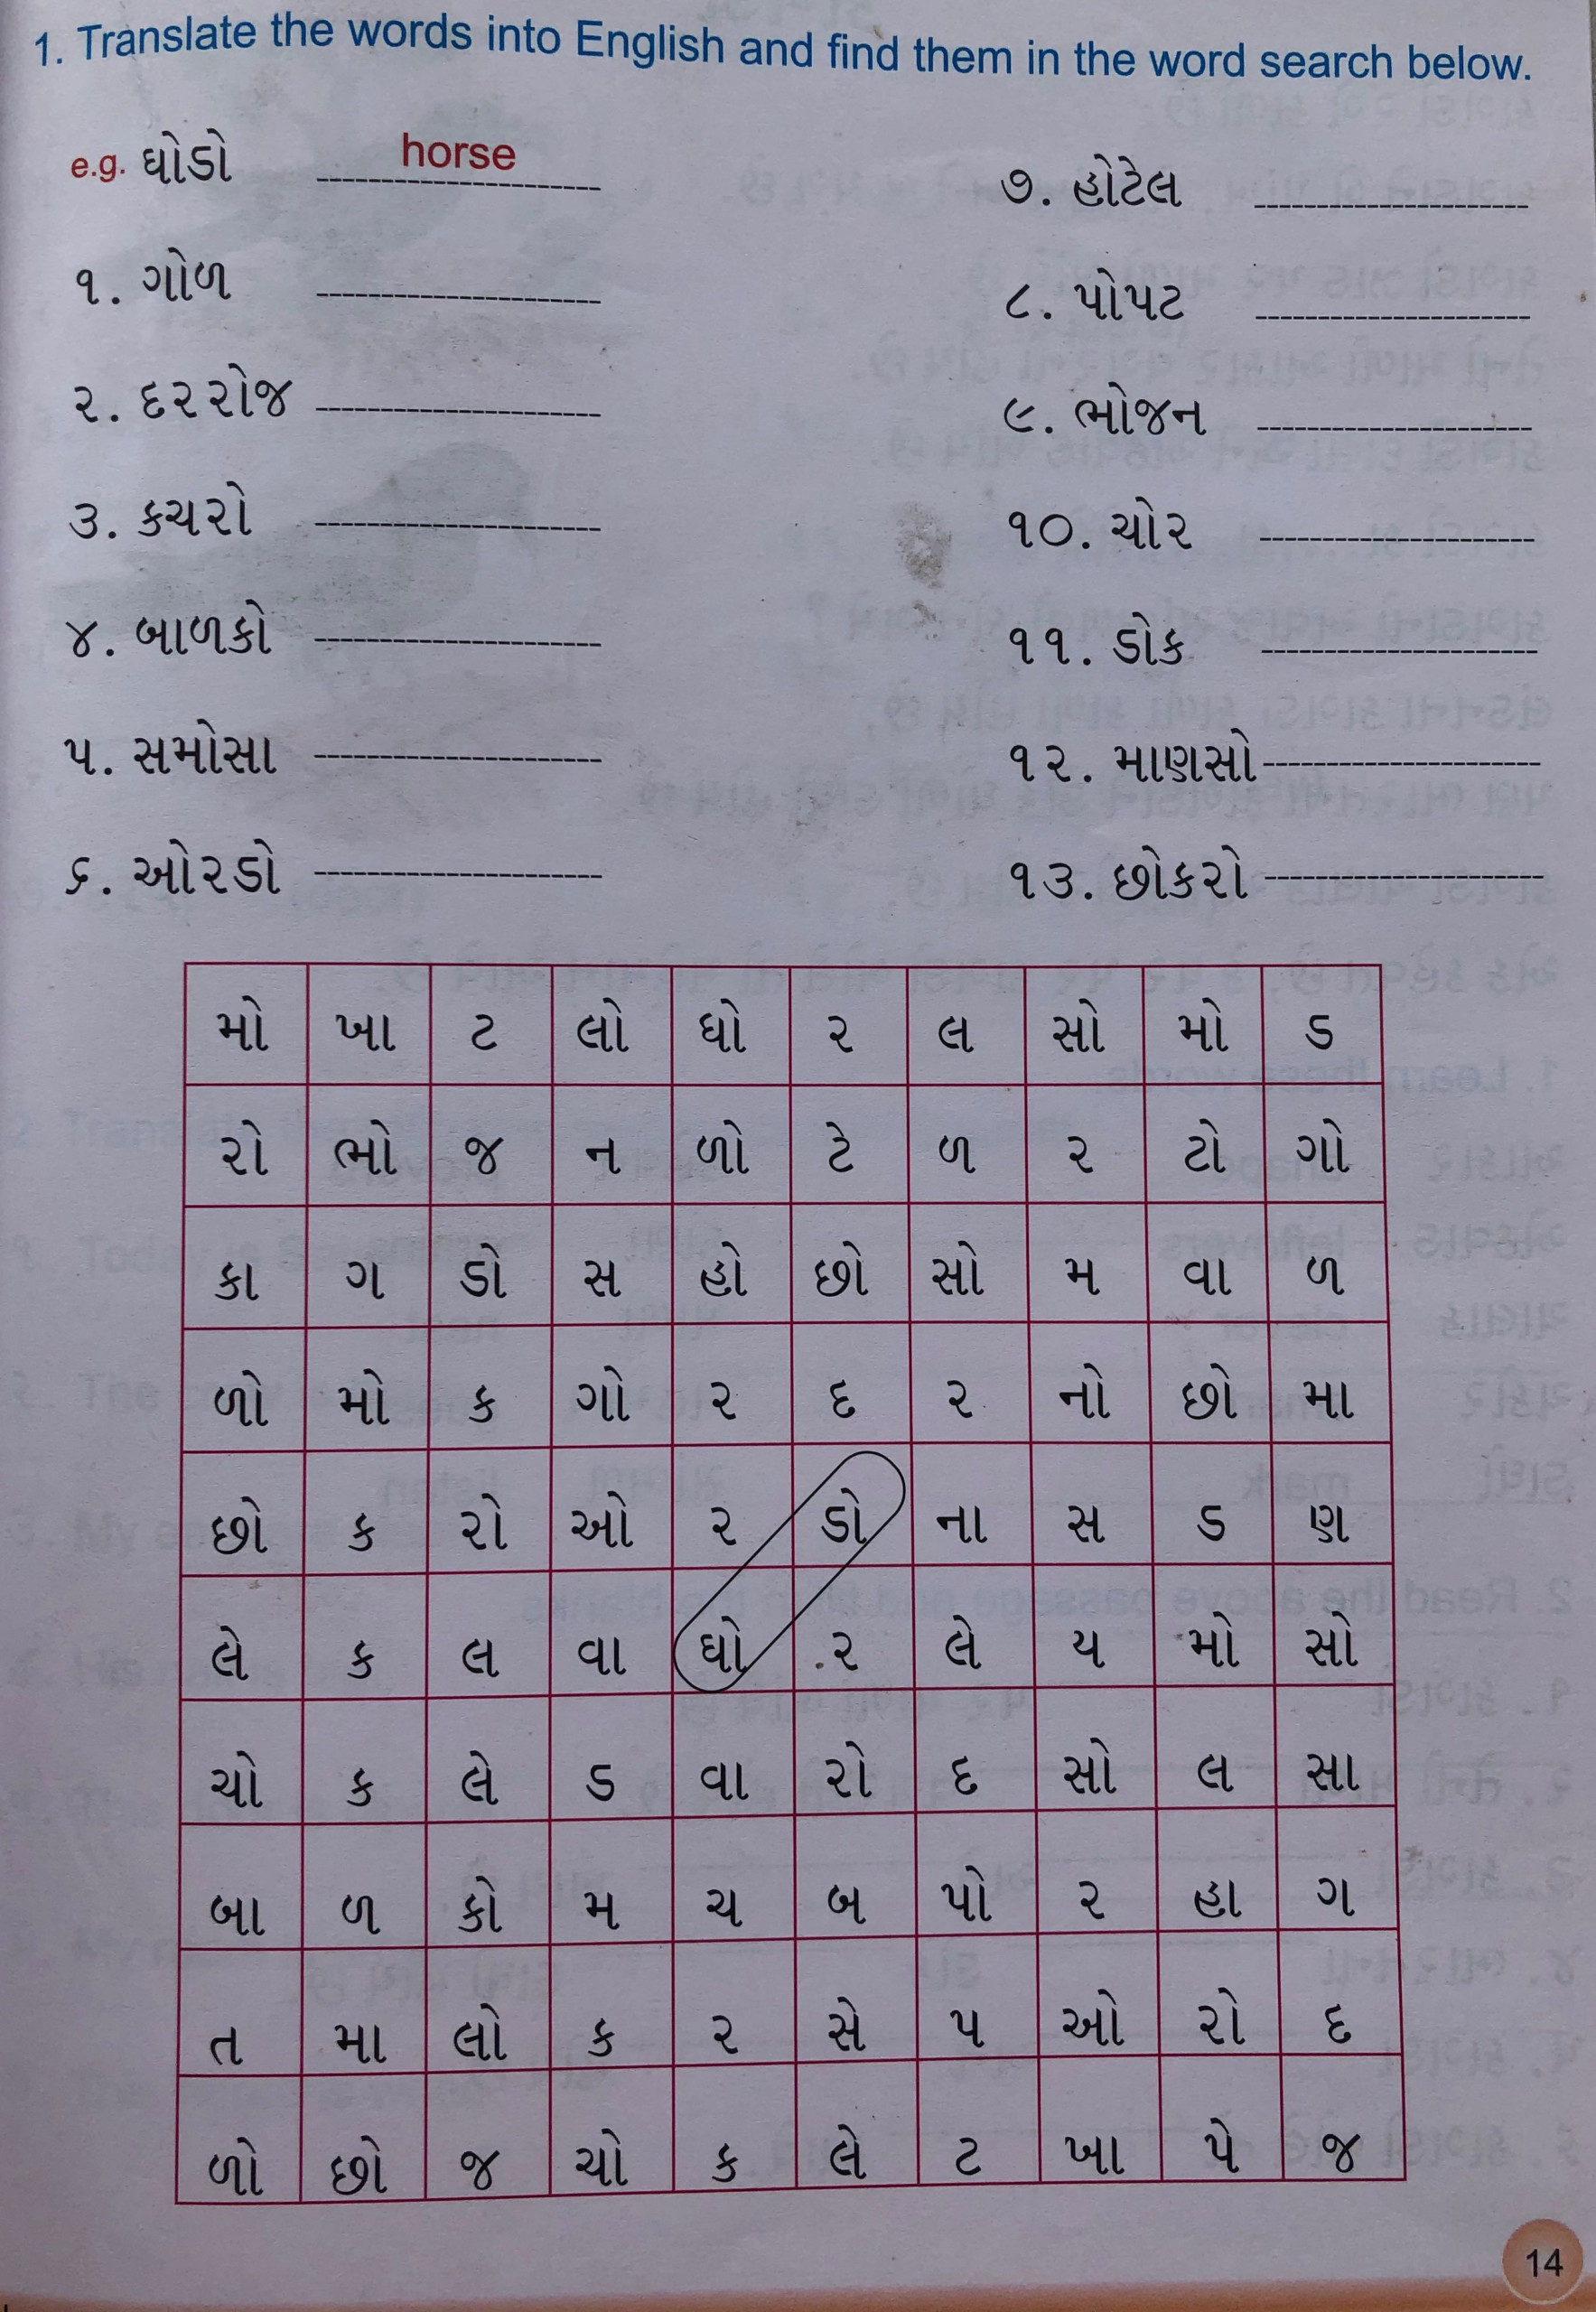 1. Translate the words into English and find them in the word search below.
e.g. ઘોડો horse
૧. ગોળ
૨. દરરોજ
૩. કચરો
૪. બાળકો
૫. સમોસા
૬. ઓરડો
૭. હોટેલ
૮. પોપટ
૯. ભોજન
૧૦. ચોર
૧૧. ડોક
૧૨. માણસો
૧૩. છોકરો
મો ખા ટ લો ઘો ર લ સો મો ડ
રો ભો જ ન ળો ટે ળ ર ટો ગો
કા ગ ડો સ હો છો સો મ વા ળ
ળો મો ક ગો ર દ ર નો છો મા
છો ક રો ઓ ર ડો ના સ ડ ણ
લે ક લ વા ઘો ર લે ય મો સો
ચો ક લે ડ વા રો દ સો લ સા
બા ળ કો મ ચ બ પો ર હા ગ
ત મા લો ક ર સે પ ઓ રો દ
ળો છો જ ચો ક લે ટ ખા પે જ
14